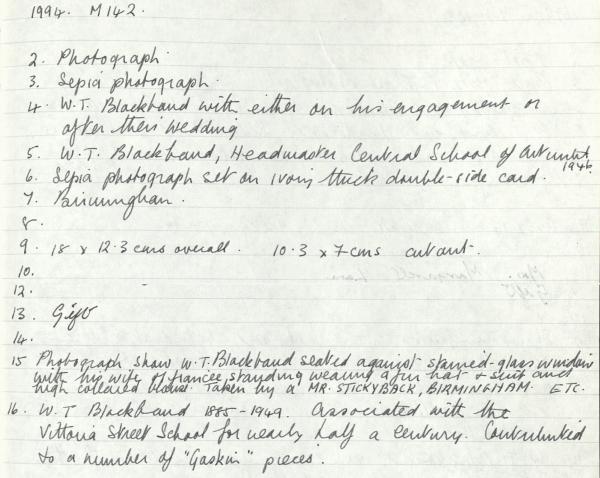 1994. M142.
2. Photograph.
3. Sepia photograph.
4. W.T. Blackband with either on his engagement or
after their wedding
5. W.T. Blackband, Headmaster Central School of Art until
1946.
6. Sepia photograph set on ivory thick double-side card.
7. Birmingham.
8.
9. 18 x 12.3 cms overall. 10.3 x 7 cms cut out.
10.
12. -
13. Gift
14.
15 Photograph show W.T. Blackband seated against stained-glass window
with his wife or fiancee, standing wearing a fur hat + suit and
high collared blouse. Taken by a MR. STICKYBACK, BIRMINGHAM. ETC.
16. W.T Blackband 1885-1949. Associated with the
Vittoria Street School for nearly half a century. Contributed
to a number of "Gaskin" pieces.